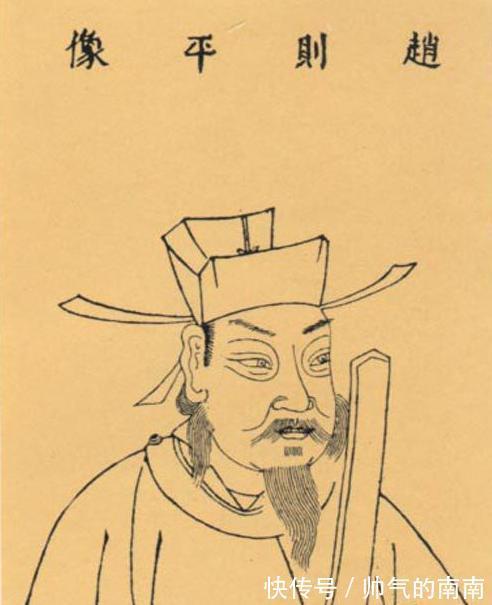 趙則平像
快传号/帅气的南南